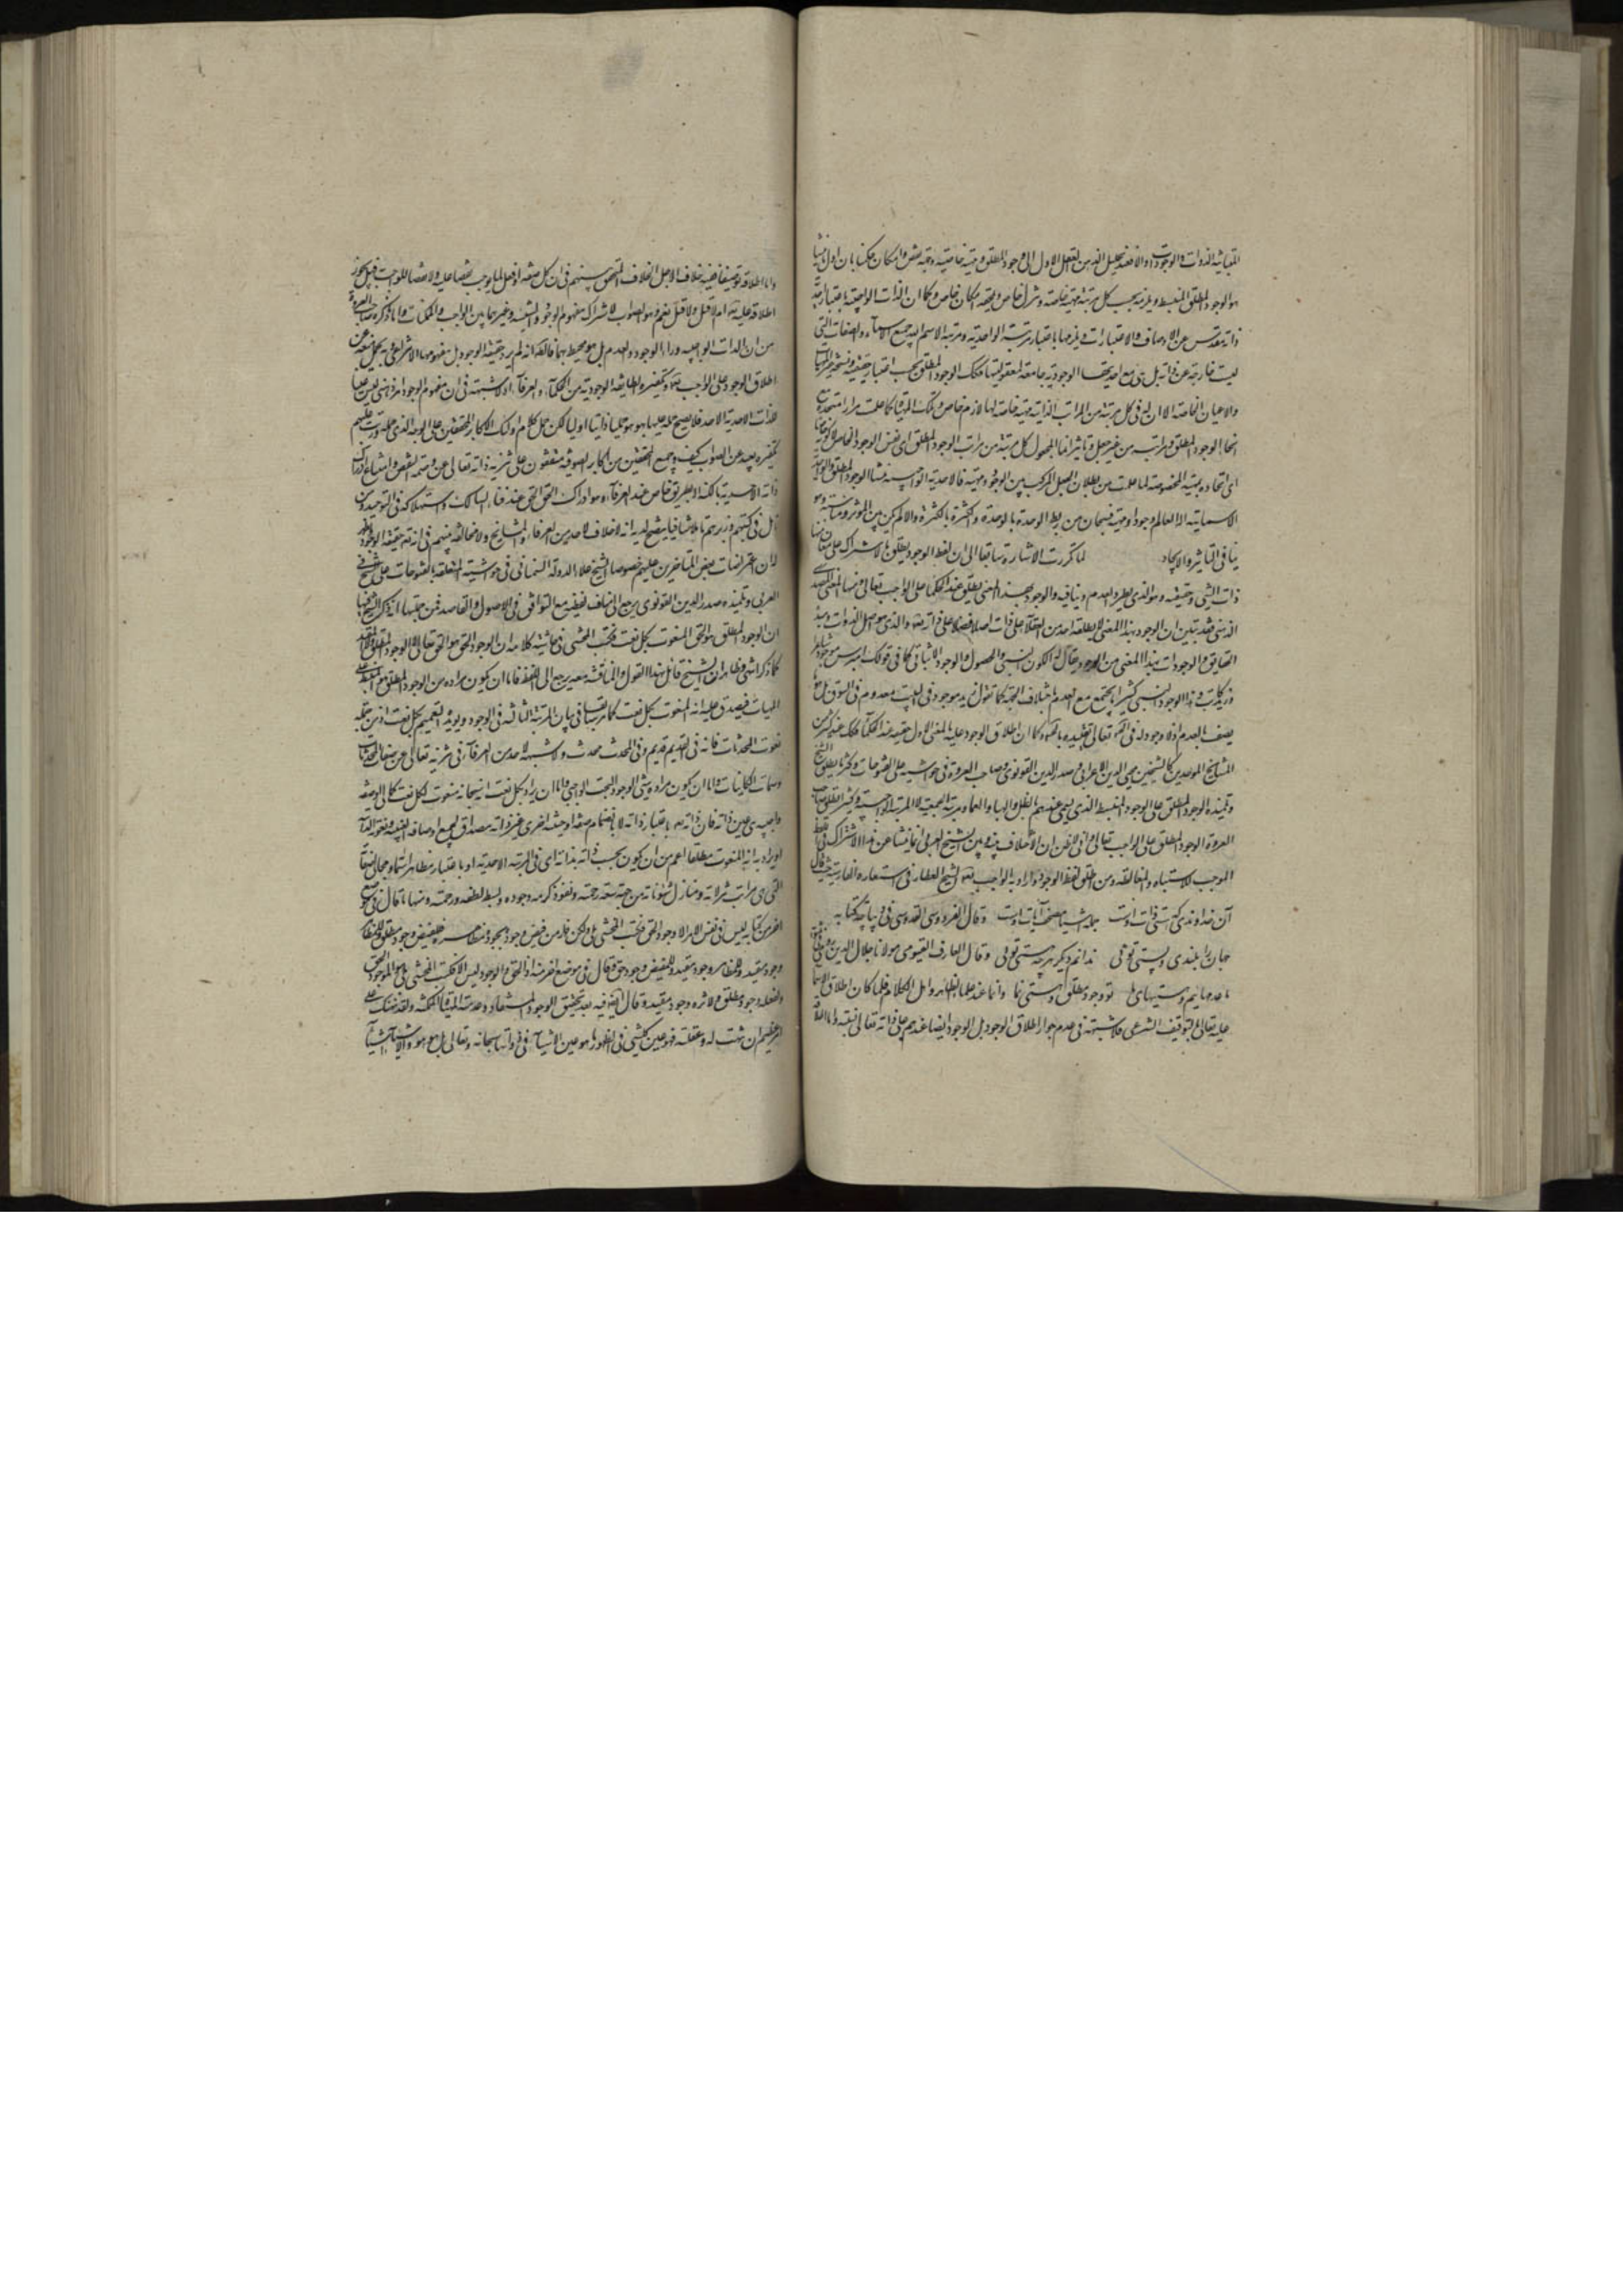 المتباينة الذوات والوجودات او الا فعند تحليل الذهن العقل الاول الى وجود المطلق ومهية خاصة وجهة نقص وامكان حكمنا بان اول ما ينشأ
هو الوجود المطلق المنبسط ويلزمه بحسب كل مرتبة مهية خاصة وتنزل خاص يلحقه امكان خاص وكما ان الذات الواجبية باعتبار احدية
ذاته مقدس عن الاوصاف والاعتبارات ويلزمها باعتبار مرتبة الواحدية ومرتبة الاسم الله جميع الاسماء والصفات التي
ليست خارجة عن ذاته بل هي مع احديتها الوجودية جامعة لمعقوليتها فكذلك الوجود المطلق بحسب اعتبار حقيقته وسنخه غير المهيات
والاعيان الخاصة الا ان له في كل مرتبة من المراتب الذاتية مهية خاصة لها لازم خاص وتلك المهيات كما علمت مرارا متحدة مع
انحاء الوجود المطلق ومراتبه من غير جعل وتاثير انما المجعول كل مرتبة من مراتب الوجود المطلق اي نفس الوجود الخاص لا كونه خاصا
اي اتحاده بمهيته المخصوصة لما علمت من بطلان الجعل المركب بين الوجود ومهيته فالاحدية الواجبية منشأ الوجود المطلق والواحدية
الاسمائية اله العالم وجودا ومهية فسبحان من ربط الوحدة بالوحدة والكثرة بالكثرة والا لم يكن بين المؤثر والمتأثر مناسبة وهو
ينافي التاثير والايجاد لما تكررت الاشارة سابقا الى ان لفظ الوجود يطلق بالاشتراك على معان منها
ذات الشيء وحقيقته وهو الذي يطرد العدم وينافيه والوجود بهذا المعنى يطلق عند الحكماء على الواجب تعالى ومنها المعنى المصدري
الذهني فقد تبين ان الوجود بهذا المعنى لا يطلقه احد من العقلاء على ذات اصلا فضلا على ذاته تعالى الذي هو اصل الذوات ومبدأ
الحقايق والوجودات وهذا المعنى من الوجود يقال له الكون النسبي والحصول والوجود الاثباتي كما في قولك اوميرس موجود شاعرا
وهذا الوجود النسبي كثيرا ما يجتمع مع العدم باختلاف الجهة كما تقول زيد موجود في البيت معدوم في السوق بل مما
يوصف بالعدم اذ لا وجود له في الخارج تعالى وتقييده بالخارج وكما ان اطلاق الوجود عليه بالمعنى الاول حقيقة عند الحكماء فكذلك عند كثير من
المشايخ الموحدين كالشيخين محيي الدين الاعرابي وصدر الدين القونوي وصاحب العروة في حواشيه على الفتوحات وكثيرا ما يطلق الشيخ
وتلميذه الوجود المطلق على الوجود المنبسط الذي يسمى عندهم بالظل والهباء والعماء ومرتبة الجمعية لا المرتبة الواجبية وكثيرا ما يطلق صاحب
العروة الوجود المطلق على الواجب تعالى واني لاظن ان الاختلاف بينه وبين الشيخ العربي انما ينشأ عن هذا الاشتراك في اللفظ
الموجب للاشتباه والمغالطة ومن اطلق لفظ الوجود واراد به الواجب تعالى الشيخ العطار في اشعاره الفارسية حيث قال
آن خداوندی که هستی ذات اوست جمله اشیا مصحف آیات اوست وقال الفردوسي القدوسي في ديباچة كتابه
جهان را بلندی و پستی توئی ندانم دیگر هر چه هستی توئی وقال العارف القيومي مولانا جلال الدين الرومي في مثنويه
ما عدمهاییم و هستیهای ما تو وجود مطلق و هستی نما واما عند علماء الظاهر واهل الكلام فلما كان اطلاق الاسماء
عليه تعالى بالتوقيف الشرعي فلا شبهة في عدم جواز اطلاق الوجود بل الموجود ايضا عندهم على ذاته تعالى تسمية واما
واما اطلاقه توصيفا ففيه خلاف لاجل الخلاف المتحقق بينهم في ان كل صفة او فعل لا يوجب نقصا عليه ولا نقصا للوجوب فهل يجوز
اطلاقه عليه تعالى ام لا قيل ولا وقيل نعم وهو الصواب لاشتراك مفهوم الوجود والشيئية وغيرهما بين الواجب والممكنات واما ما ذكره صاحب العروة
من ان الذات الواجبية وراء الوجود والعدم بل هو محيط بهما فالظاهر انه لم يرد حقيقة الوجود بل مفهومه الانتزاعي فيحمل منعه عن
اطلاق الوجود على الواجب تعالى وتكفيره الطائفة الوجودية من الحكماء والعرفاء اذ لا شبهة في ان مفهوم الوجود امر ذهني ليس عينا
للذات الاحدية الاحد فلا يصح حمله عليها بهو هو حملا ذاتيا اوليا لكن حمل كلام اولئك الاكابر المحققين على الوجه الذي حمله ورتب عليه
تكفيره بعيد عن الصواب كيف وجميع المحققين من اكابر الصوفية متفقون على تنزيه ذاته تعالى عن وصمة النقص وامتناع ادراك
ذاته الاحدية بالكنه الا بطريق خاص عند العرفاء وهو ادراك الحق بالحق عند فناء السالك واستهلاكه في التوحيد ومن
تأمل في كتبهم وزبرهم تأملا شافيا يتضح لديه انه لا خلاف لاحد من العرفاء والمشايخ ولا مخالفة بينهم في انه تعالى حقيقة الوجود ويظهر
له ان اعتراضات بعض المتاخرين عليهم خصوصا الشيخ علاء الدولة السمناني في حواشيه المتعلقة بالفتوحات على الشيخ
العربي وتلميذه صدر الدين القونوي يرجع الى مناقشات لفظية مع التوافق في الاصول والمقاصد فمن جملتها انه ذكر الشيخ فيها
ان الوجود المطلق هو الحق المنعوت بكل نعت فكتب المحشي في حاشية كلامه ان الوجود الحق هو الحق تعالى لا الوجود المطلق ولا المقيد
كما ذكر انتهى وظاهر ان الشيخ قائل بهذا القول والمناقشة معه يرجع الى اللفظ فاما ان يكون مراده من الوجود المطلق هو المنبسط على
المهيات فيصدق عليه انه المنعوت بكل نعت كما مر سابقا في بيان المرتبة الثالثة في الوجود ويؤيده التعميم بكل نعت اذ من جملته
نعوت المحدثات فانه في القديم قديم وفي المحدث محدث ولا شبهة لاحد من العرفاء في تنزيه تعالى عن صفات المحدثات
وسمات الكائنات واما ان يكون مراده الوجود البحت الواجبي واما ان يراد بكل نعت انه سبحانه منعوت لكل نعت كمالي او صفة
واجبية هي عين ذاته فان ذاته تعالى باعتبار ذاته لا بانضمام صفة او حيثية اخرى غير ذاته مصداق لجميع اوصافه الغيبية ونعوته الذاتية
او يراد به انه المنعوت مطلقا اعم من ان يكون بحسب ذاته بذاته اي في المرتبة الاحدية او باعتبار مظاهر اسمائه ومجالي صفاته
التي هي مراتب تنزلاته ومنازل شئوناته من جهة سعة رحمته ونفوذ كرمه وجوده وبسط لطفه ورحمته ومنها ما قال في موضع
اخر من كتابه ليس في نفس الامر الا وجود الحق فكتب المحشي بلى ولكن ظهر من فيض وجوده بجوده مظاهره فللفيض وجود مطلق وللمظاهر
وجود مقيد وللمظاهر وجود مقيد وللمفيض وجود حق وقال في موضع اخر منه اذ الحق هو الوجود ليس الا فكتب المحشي بلى هو الوجود الحق
ولفعله وجود مطلق ولاثره وجود مقيد وقال ايضا فيه بعد تحقيق الوجود المستفاد وعند المهيات الممكنة ولقد نبهتك على
امر عظيم ان تنبهت له وعقلته فهو عين كل شيء في الظهور ما هو عين الاشياء في ذواتها سبحانه وتعالى بل هو هو والاشياء اشياء